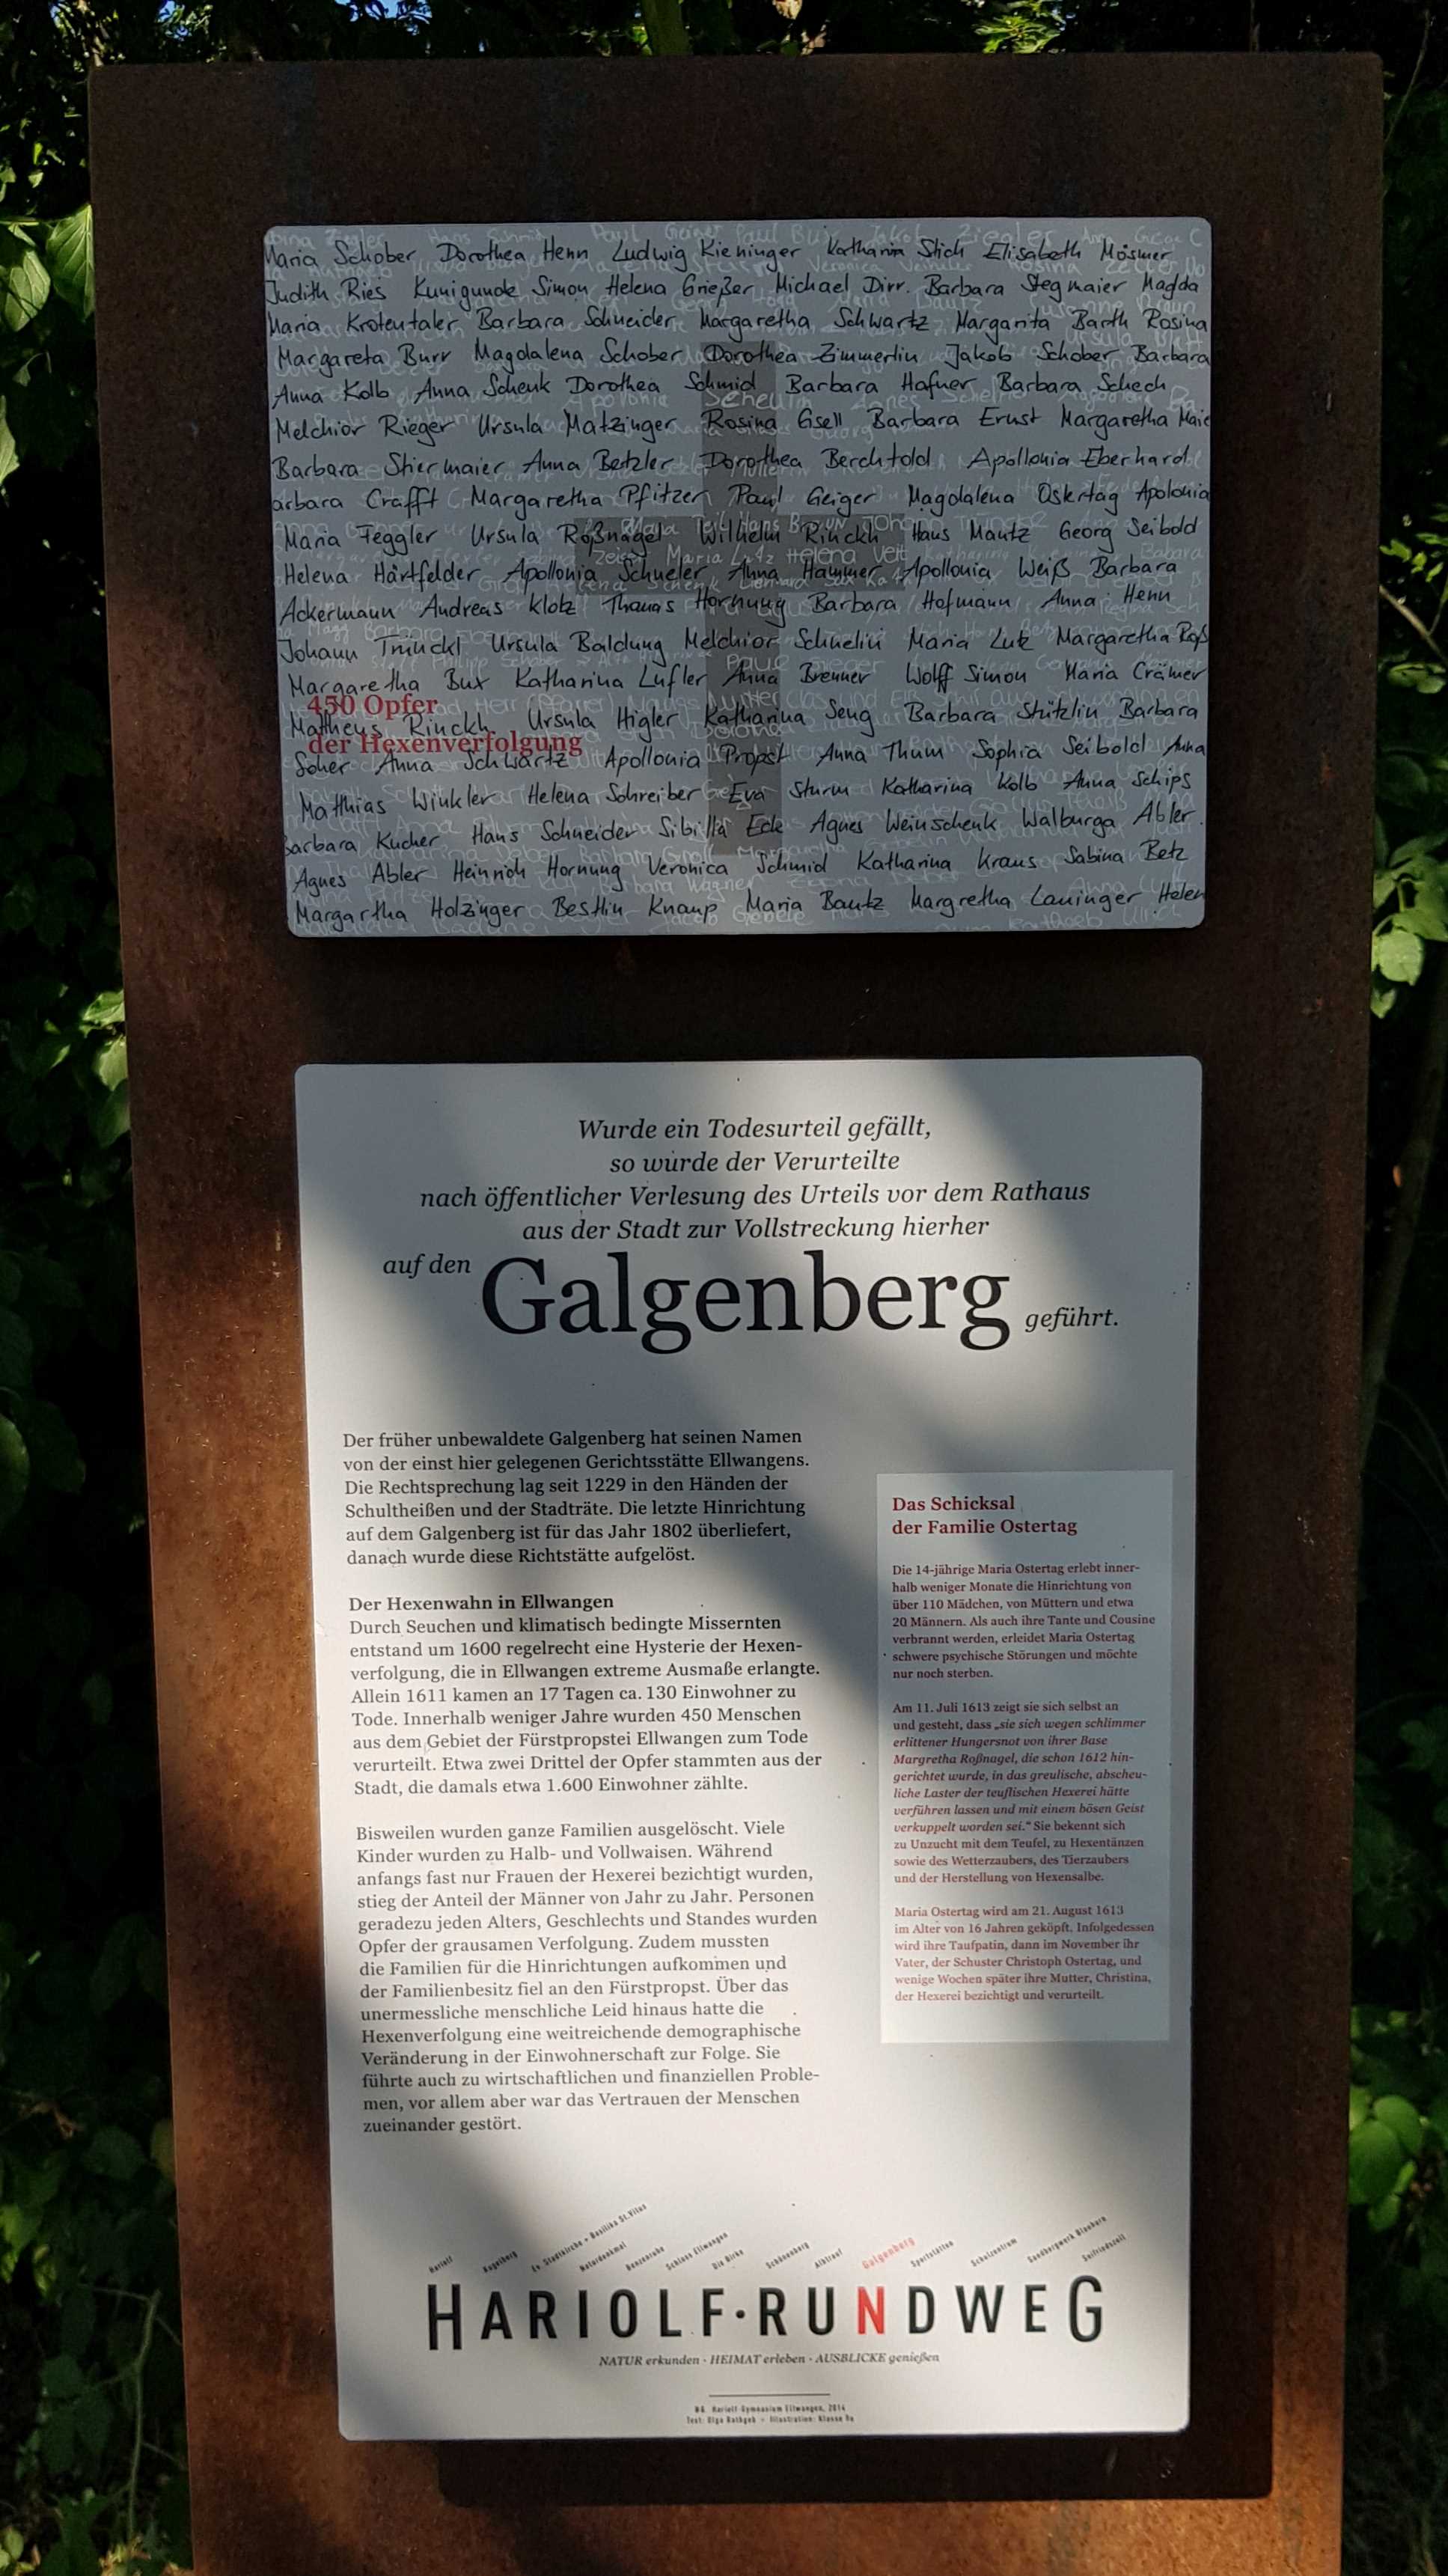 Maria Schober Dorothea Henn Ludwig Kieninger Katharina Stich Elisabeth Mösmer
Judith Ries Kunigunde Simon Helena Grießer Michael Dirr Barbara Stegmaier Magda
Maria Krotentaler Barbara Schneider Margaretha Schwartz Margarita Barth Rosina
Margareta Burr Magdalena Schober Dorothea Zimmerlin Jakob Schober Barbara
Anna Kolb Anna Schenk Dorothea Schmid Barbara Hafner Barbara Schech
Melchior Rieger Ursula Matzinger Rosina Gsell Barbara Ernst Margaretha Maie
Barbara Stiermaier Anna Betzler Dorothea Berchtold Apollonia Eberhard
arbara Crafft Margaretha Pfitzer Paul Geiger Magdalena Ostertag Apolonia
Maria Feggler Ursula Roßnagel Wilhelm Rinckh Hans Mantz Georg Seibold
Helena Härtfelder Apollonia Schueler Anna Hammer Apollonia Weiß Barbara
Ackermann Andreas Klotz Thomas Hornung Barbara Hofmann Anna Henn
Johann Trinckl Ursula Baldung Melchior Schnelin Maria Lutz Margaretha Roß
Margaretha Bux Katharina Lufler Anna Brenner Wolff Simon Maria Crämer
450 Opfer
Mattheus Rinckh Ursula Higler Katharina Seng Barbara Stützlin Barbara
der Hexenverfolgung
Soher Anna Schwartz Apollonia Propst Anna Thum Sophia Seibold Anna
Matthias Winkler Helena Schreiber Eva Sturm Katharina Kolb Anna Schips
Barbara Kucher Hans Schneider Sibilla Eck Agnes Weinschenk Walburga Abler
Agnes Abler Heinrich Hornung Veronica Schmid Katharina Kraus Sabina Betz
Margartha Holzinger Bestlin Knaup Maria Bautz Margretha Lauinger Helen
Wurde ein Todesurteil gefällt,
so wurde der Verurteilte
nach öffentlicher Verlesung des Urteils vor dem Rathaus
aus der Stadt zur Vollstreckung hierher
auf den Galgenberg geführt.
Der früher unbewaldete Galgenberg hat seinen Namen
von der einst hier gelegenen Gerichtsstätte Ellwangens.
Die Rechtsprechung lag seit 1229 in den Händen der
Schultheißen und der Stadträte. Die letzte Hinrichtung
auf dem Galgenberg ist für das Jahr 1802 überliefert,
danach wurde diese Richtstätte aufgelöst.
Der Hexenwahn in Ellwangen
Durch Seuchen und klimatisch bedingte Missernten
entstand um 1600 regelrecht eine Hysterie der Hexen-
verfolgung, die in Ellwangen extreme Ausmaße erlangte.
Allein 1611 kamen an 17 Tagen ca. 130 Einwohner zu
Tode. Innerhalb weniger Jahre wurden 450 Menschen
aus dem Gebiet der Fürstpropstei Ellwangen zum Tode
verurteilt. Etwa zwei Drittel der Opfer stammten aus der
Stadt, die damals etwa 1.600 Einwohner zählte.
Bisweilen wurden ganze Familien ausgelöscht. Viele
Kinder wurden zu Halb- und Vollwaisen. Während
anfangs fast nur Frauen der Hexerei bezichtigt wurden,
stieg der Anteil der Männer von Jahr zu Jahr. Personen
geradezu jeden Alters, Geschlechts und Standes wurden
Opfer der grausamen Verfolgung. Zudem mussten
die Familien für die Hinrichtungen aufkommen und
der Familienbesitz fiel an den Fürstpropst. Über das
unermessliche menschliche Leid hinaus hatte die
Hexenverfolgung eine weitreichende demographische
Veränderung in der Einwohnerschaft zur Folge. Sie
führte auch zu wirtschaftlichen und finanziellen Proble-
men, vor allem aber war das Vertrauen der Menschen
zueinander gestört.
Das Schicksal
der Familie Ostertag
Die 14-jährige Maria Ostertag erlebt inner-
halb weniger Monate die Hinrichtung von
über 110 Mädchen, von Müttern und etwa
20 Männern. Als auch ihre Tante und Cousine
verbrannt werden, erleidet Maria Ostertag
schwere psychische Störungen und möchte
nur noch sterben.
Am 11. Juli 1613 zeigt sie sich selbst an
und gesteht, dass „sie sich wegen schlimmer
erlittener Hungersnot von ihrer Base
Margretha Roßnagel, die schon 1612 hin-
gerichtet wurde, in das greulische, abscheu-
liche Laster der teuflischen Hexerei hätte
verführen lassen und mit einem bösen Geist
verkuppelt worden sei.“ Sie bekennt sich
zu Unzucht mit dem Teufel, zu Hexentänzen
sowie des Wetterzaubers, des Tierzaubers
und der Herstellung von Hexensalbe.
Maria Ostertag wird am 21. August 1613
im Alter von 16 Jahren geköpft. Infolgedessen
wird ihre Taufpatin, dann im November ihr
Vater, der Schuster Christoph Ostertag, und
wenige Wochen später ihre Mutter, Christina,
der Hexerei bezichtigt und verurteilt.
Hariolf
Ev. Stadtkirche + Basilika St. Vitus
Naturdenkmal
Schloss Ellwangen
Schönenberg
Galgenberg
Sportstätten
Schulzentrum
HARIOLF·RUNDWEG
NATUR erkunden · HEIMAT erleben · AUSBLICKE genießen
Hariolf Gymnasium Ellwangen, 2014